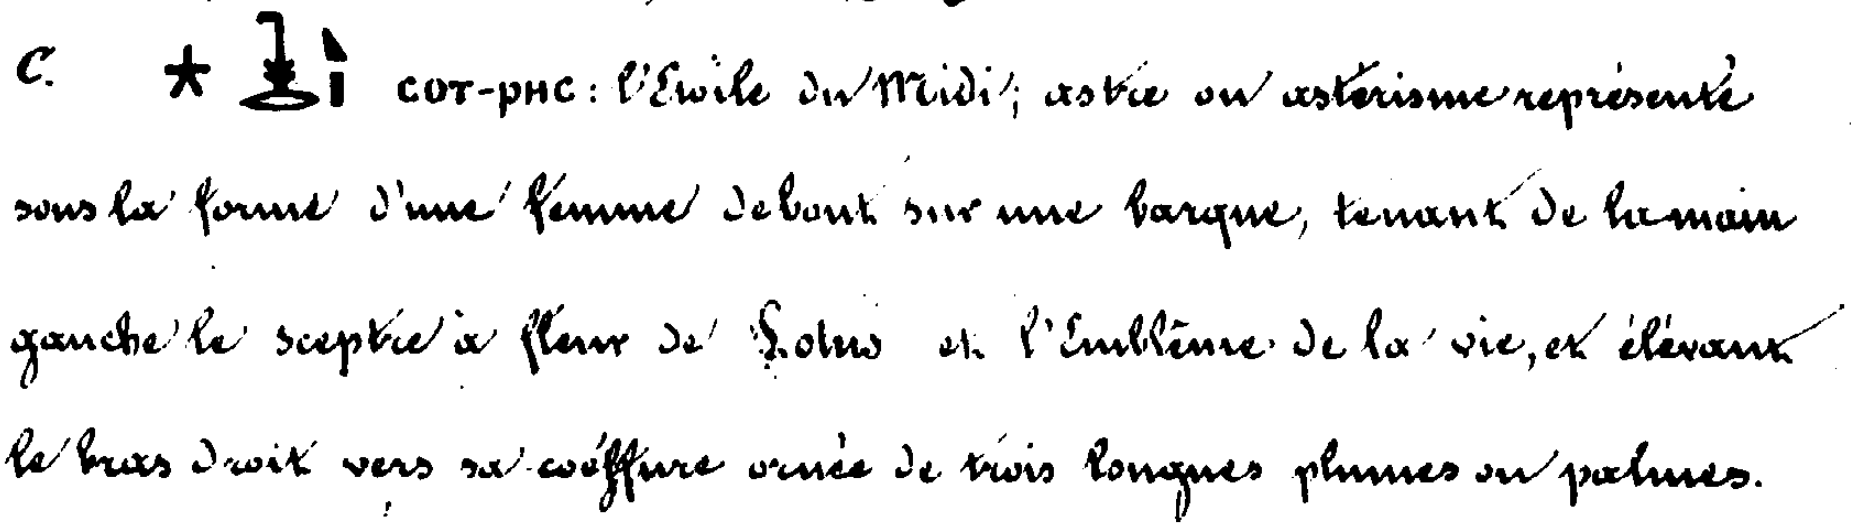 C. ⲥⲟⲧ-ⲣⲏⲥ : l'Etoile du Midi; astre ou astérisme représenté
sous la forme d'une femme debout sur une barque, tenant de la main
gauche le sceptre à fleur de Lotus et l'Emblême de la vie, et élévant
le bras droit vers sa coéffure ornée de trois longues plumes ou palmes.